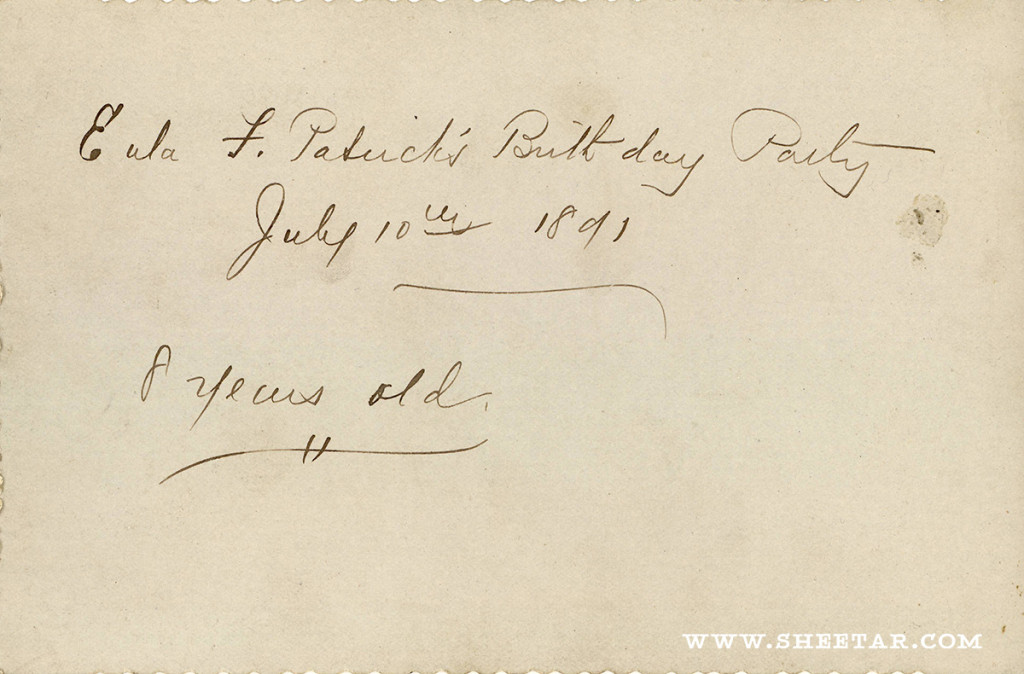 Eula F. Patrick's Birthday Party
July 10th 1891
8 years old.
WWW.SHEETAR.COM